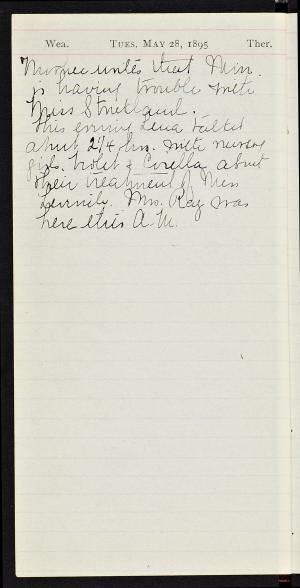 Wea. TUES, MAY 28, 1895 Ther.
writes that Min.
is having trouble with
Miss Strickland.
This evening Lena talked
about 2 1/4 hrs. with nursery
girls. Violet & Corella about
their treatment of Miss
Mrs. Ray was
here this A.M.